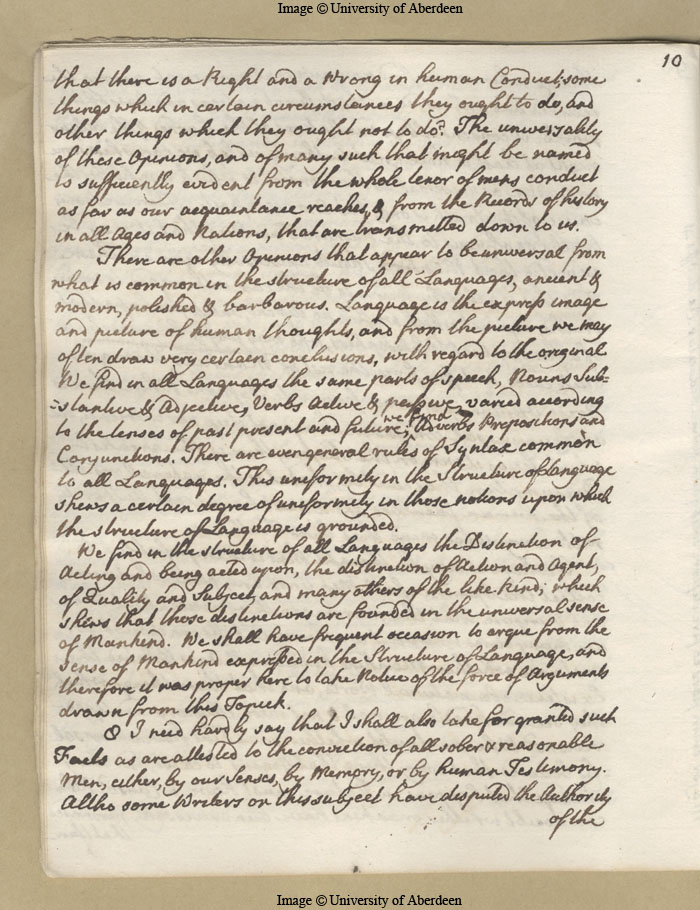 Image © University of Aberdeen
10
that there is a Right and a Wrong in human Conduct; some
things which in certain circumstances they ought to do, and
other things which they ought not to do? The universality
of these Opinions, and of many such that might be named
is sufficiently evident from the whole tenor of mens conduct
as far as our acquaintance reaches, & from the Records of history
in all Ages and Nations, that are transmitted down to us.
There are other Opinions that appear to be universal from
what is common in the structure of all Languages, ancient &
modern, polished & barbarous. Language is the express image
and picture of human thoughts, and from the picture we may
often draw very certain conclusions, with regard to the original
We find in all Languages the same parts of speech, Nouns Sub-
-stantive & Adjective, Verbs Active & passive, varied according
to the tenses of past present and future; we find Adverbs Prepositions and
Conjunctions. There are even general rules of Syntax common
to all Languages. This uniformity in the Structure of Language
shews a certain degree of uniformity in those notions upon which
the structure of Language is grounded.
We find in the structure of all Languages the Distinction of
Acting and being acted upon, the distinction of Action and Agent,
of Quality and Subject, and many others of the like kind; which
shews that those distinctions are founded in the universal sense
of Mankind. We shall have frequent occasion to argue from the
sense of Mankind expressed in the Structure of Language, and
therefore it was proper here to take Notice of the force of Arguments
drawn from this Topick.
8 I need hardly say that I shall also take for granted such
Facts as are attested to the conviction of all sober & reasonable
Men, either, by our Senses, by Memory, or by human Testimony.
Altho some Writers on this subject have disputed the Authority
of the
Image © University of Aberdeen